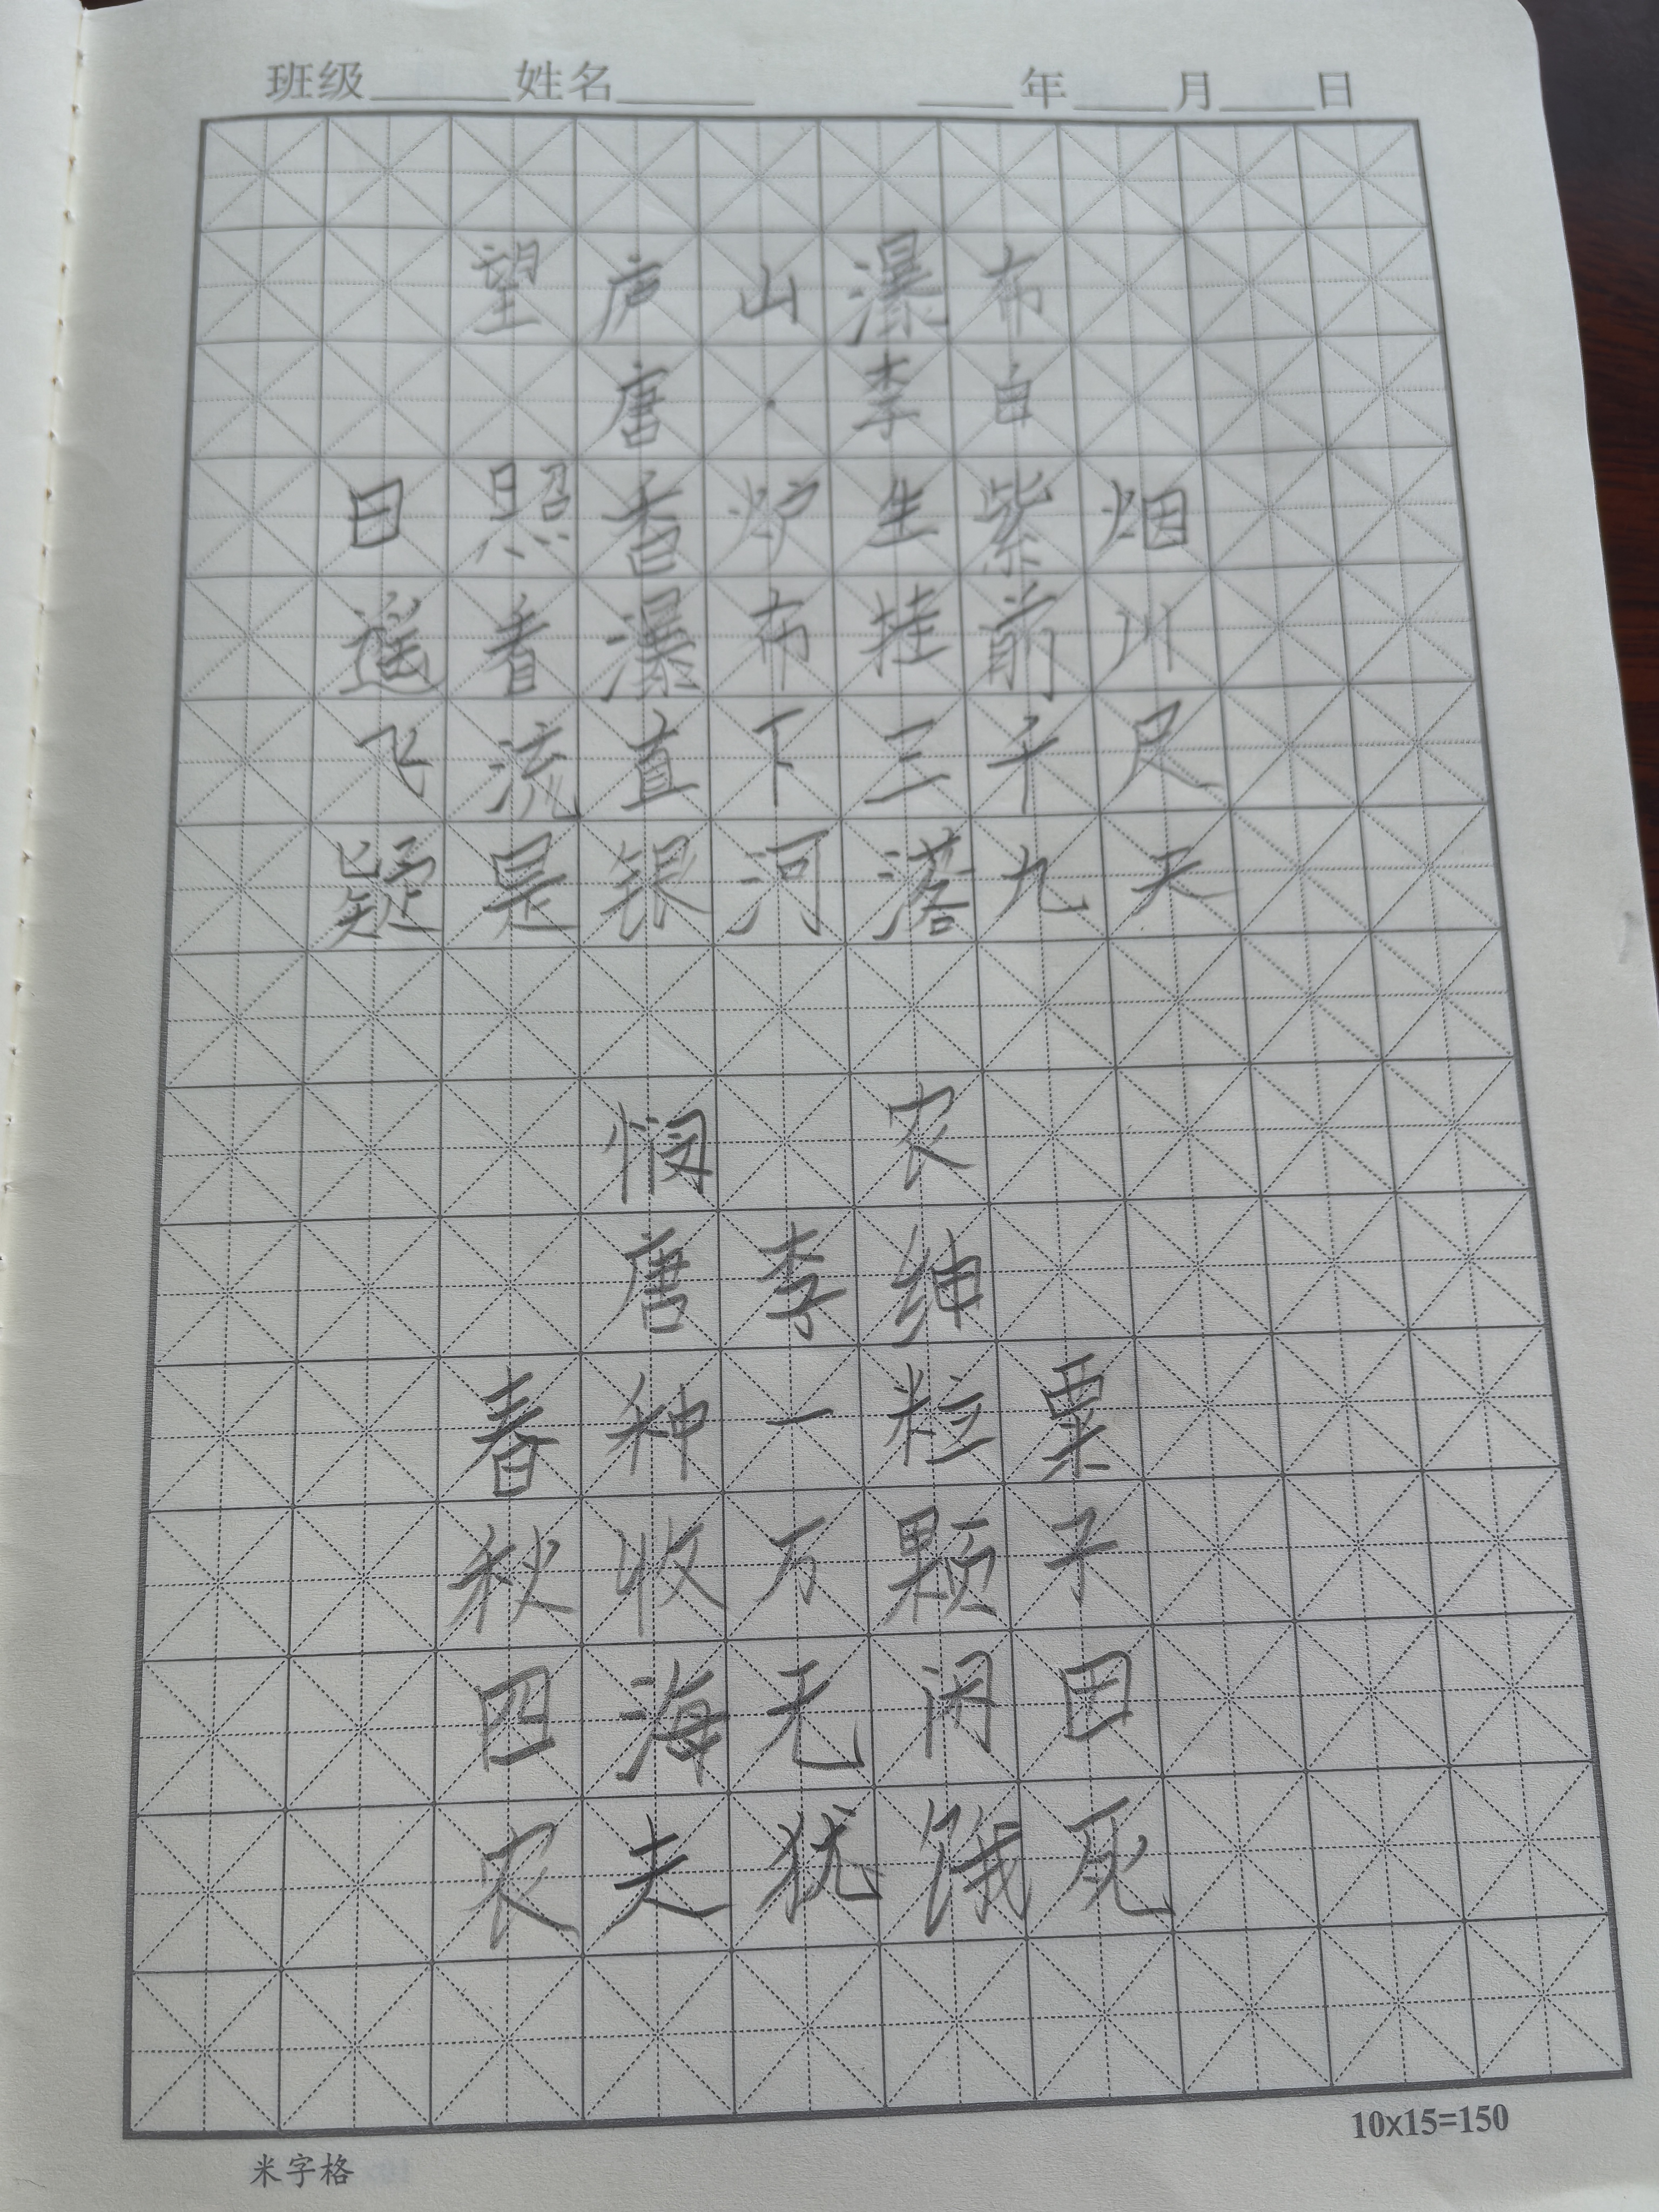 班级______姓名______ ____年____月____日
望庐山瀑布
唐·李白
日照香炉生紫烟
遥看瀑布挂前川
飞流直下三千尺
疑是银河落九天
悯农
唐李绅
春种一粒粟
秋收万颗子
四海无闲田
农夫犹饿死
10x15=150
米字格